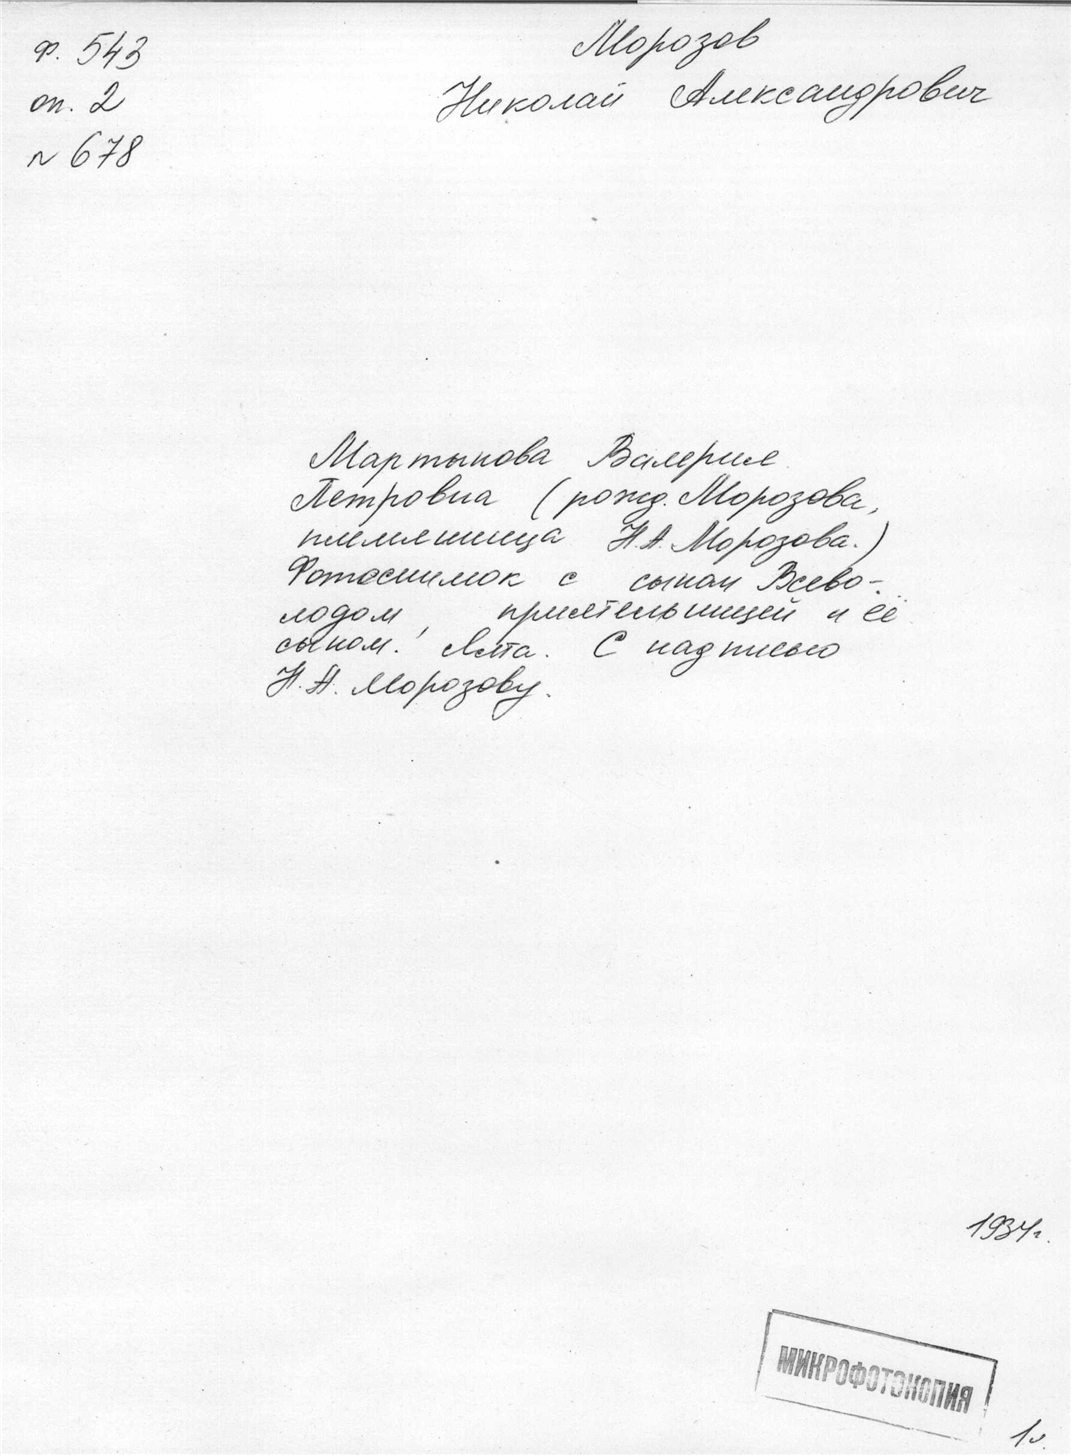 ф. 543
оп. 2
№ 678
Морозов
Николай Александрович
Мартынова Валерия
Петровна (рожд. Морозова,
племянница Н.А. Морозова.)
Фотоснимок с сыном Всево-
лодом, приятельницей и её
сыном. Ялта. С надписью
Н.А. Морозову.
1934г.
МИКРОФОТОКОПИЯ